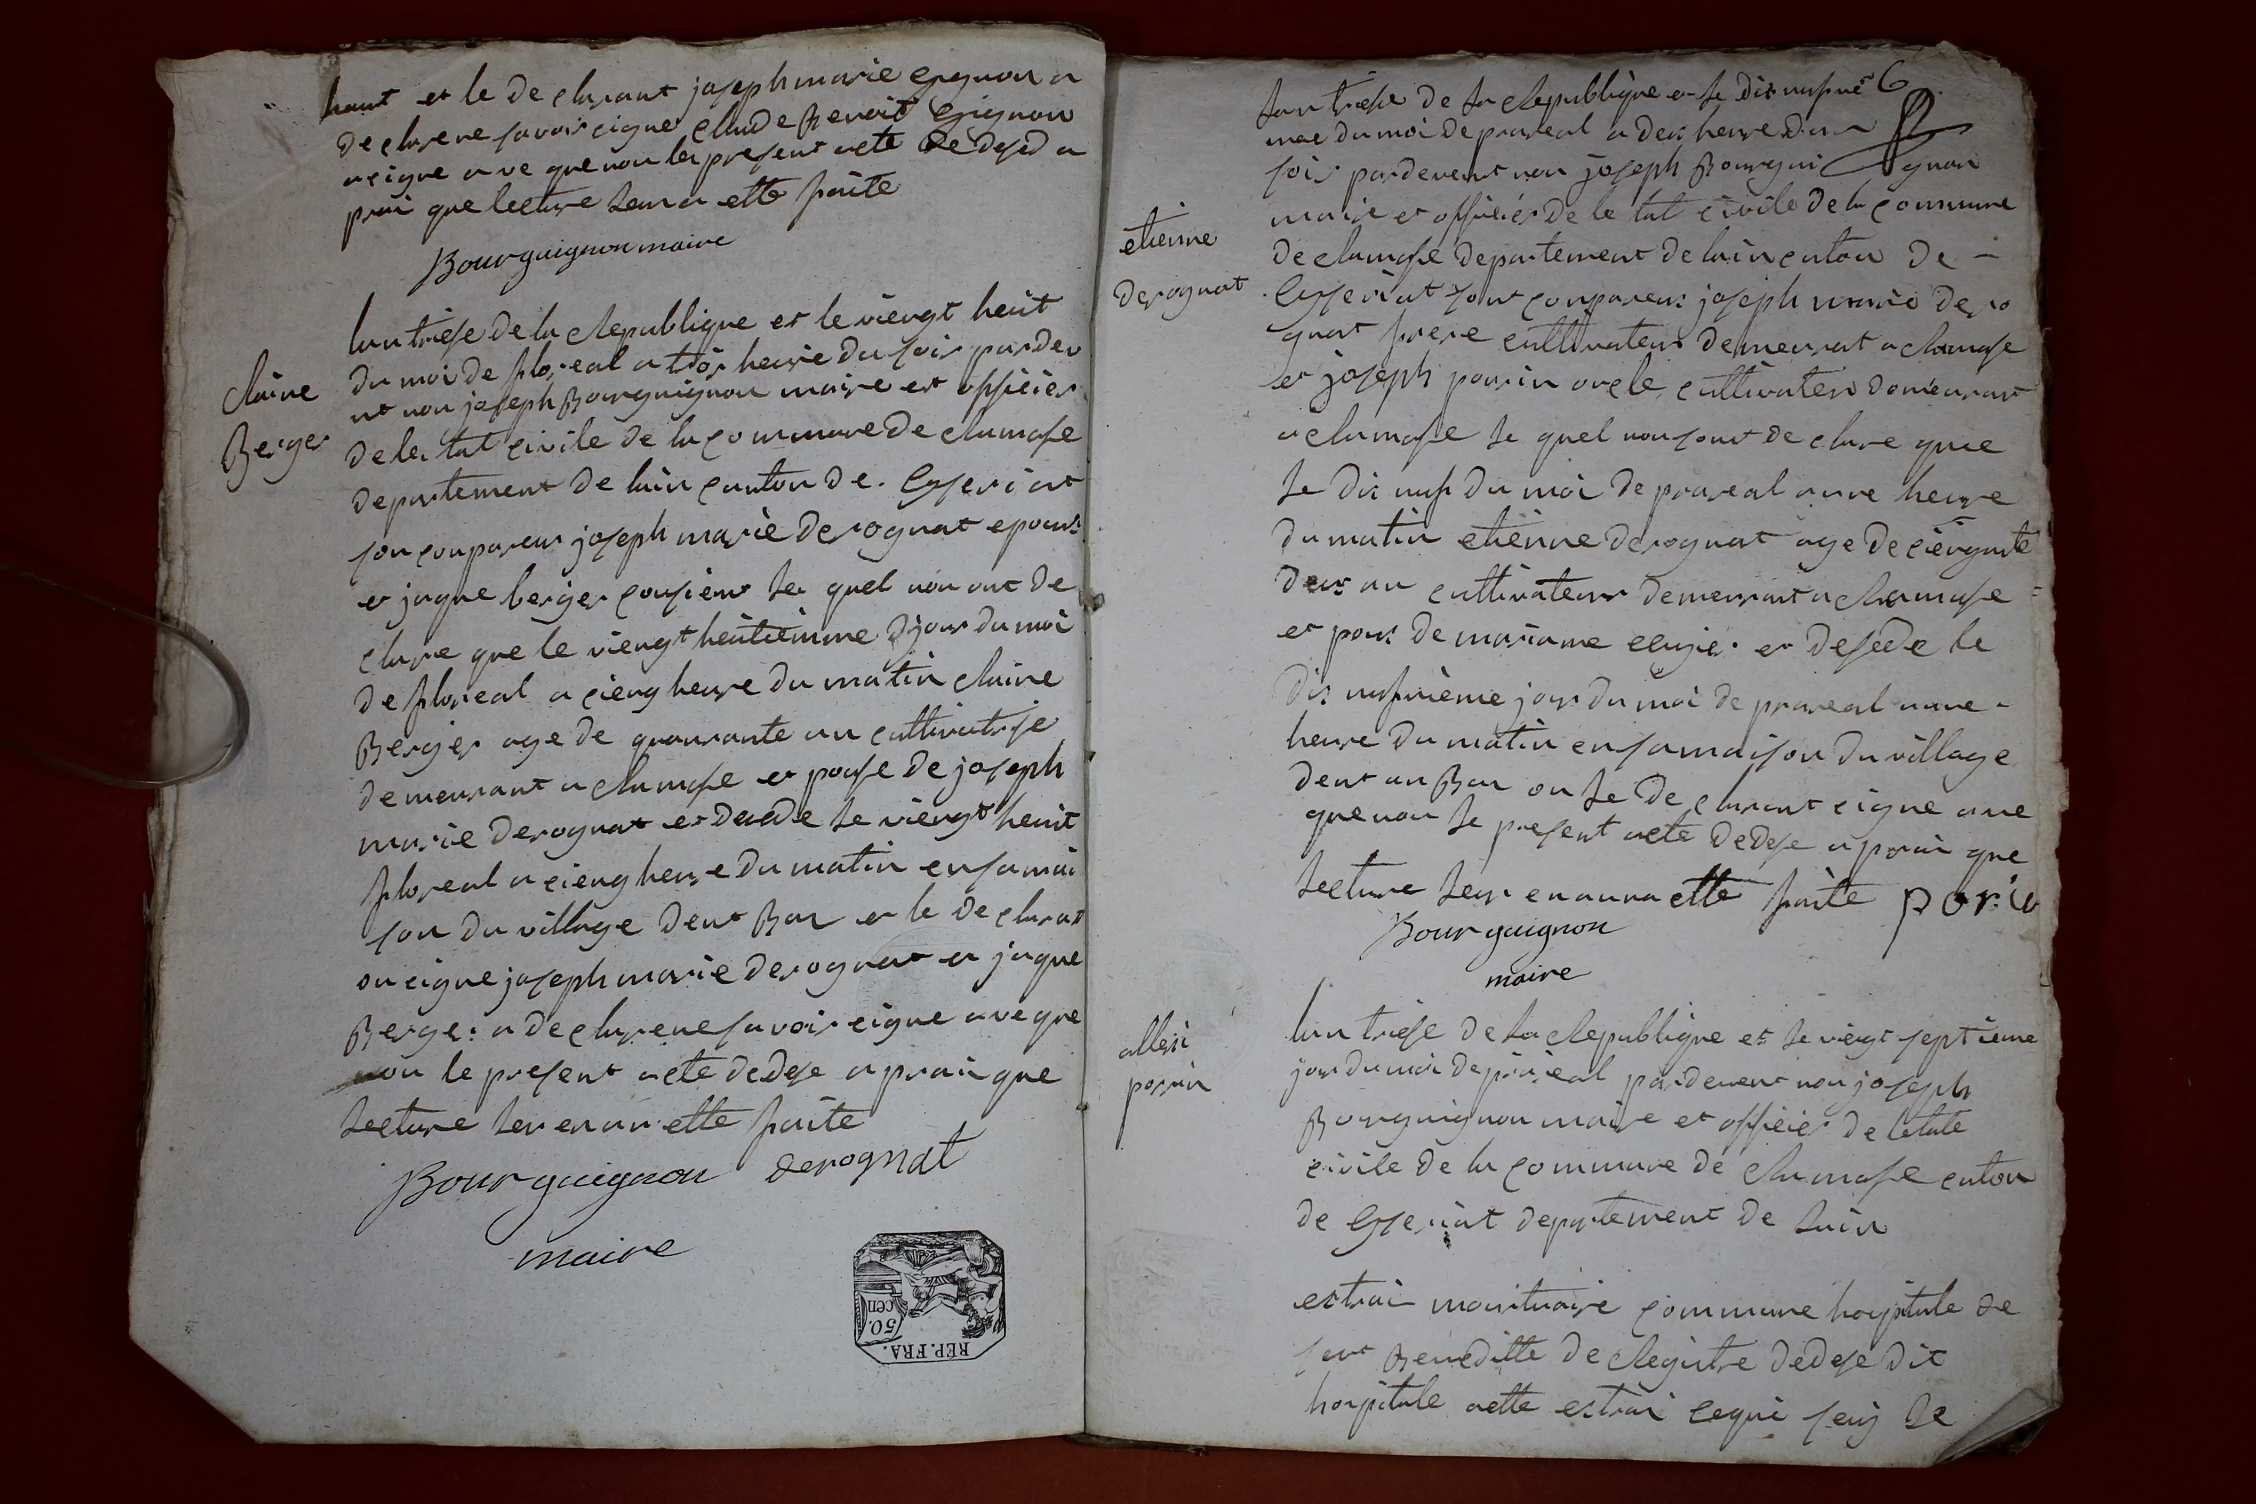 hant et le declarant joseph marie grignon a
declare ne savoir cigner claude Benoit grignon
a cigne a ve que nou les present acte de desed a
prai que lecture leur a ette faite
Bourguignon maire
claire
Berger
lan trese de la Republique et le viengt heuit
du moi de floreal a trois heure du soir pardev
nt nou joseph Bourguignon maire et officier
de le tat civile de la commune de clamose
departement de lain canton de
son conpareus joseph marie derognat epous
et jaque berger cousiens les quel nou ont de
clare que le viengt heuitiemme jour du moi
de floreal a cienq heure du matin claire
Berger age de quaurante an cultivatrise
demeurant a clamose et pouse de joseph
marie derognat et decede le viengt heuit
floreal a cienq heure du matin en sa mai
son du village dent Bou et le declarat
on cigne joseph marie derognat et jaque
Berger a declare ne savoir cigne a ve que
nou le present acte dedese a prai que
lecture leur en au ette faite
Bourguignon derognat
maire
REP. FRA.
50. cen
6
lan trese de la Republique et le dis nufvie
me du moi de prareal a deus heure du
soir pardevent nou joseph Bourguignon
maire et officier de le tat civile de la commune
de clamose departement de lain canton de
etienne
derognat
sont conpareus joseph marie dero
gnat frere cultivateur demeurat a clamose
et joseph porrin oncle cultivateur domeurant
a clamose le quel nou sont de clare que
le dis nuf du moi de prareal a une heure
du matin etienne derognat age de ciengante
deus an cultivateur demeurant a clamose
et pous de mariame et desede le
dis nufvieme jour du moi de prareal a une
heure du matin en sa maison du village
dent an Bou on le declarant cigne a ve
que nou le present acte dedese a prai que
lecture leur en aura ette faite porin
Bourguignon
maire
allexi
porrin
lan trese de la Republique et le viengt septieme
jour du moi de prareal pardevent nou joseph
Bourguignon maire et officier de letate
civile de la commune de clamose canton
de departement de lain
extrai mourtuaire commune hopitale de
sent Beneditte de Registre dedese dit
hopitale aette extrai cequi suij le